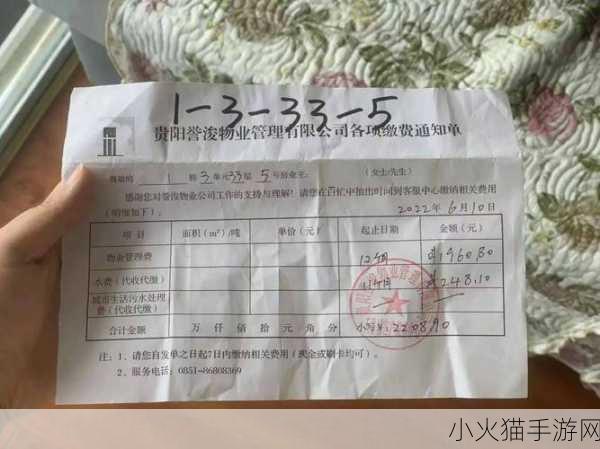 1-3-33-5
贵阳誉浚物业管理有限公司各项缴费通知单
尊敬的 1 栋 3 单元 33 层 5 号房业主: (女士/先生)
感谢您对誉浚物业公司工作的支持与理解!请您在百忙中抽出时间到客服中心缴纳相关费用
(明细如下)。 2022年6月10日
项 目 面积(m²)/吨 单价(元) 起止日期 金额(元)
物业管理费 12个月 ¥1960.80
水费(代收代缴) ¥248.10
城市生活污水处理
费(代收代缴)
合计金额 万 仟 佰 拾 元 角 分 小写:2208.90
注:1、请您自发单之日起7日内缴纳相关费用(现金或刷卡均可)。
2、服务电话:0851-86808369
小火猫手游网